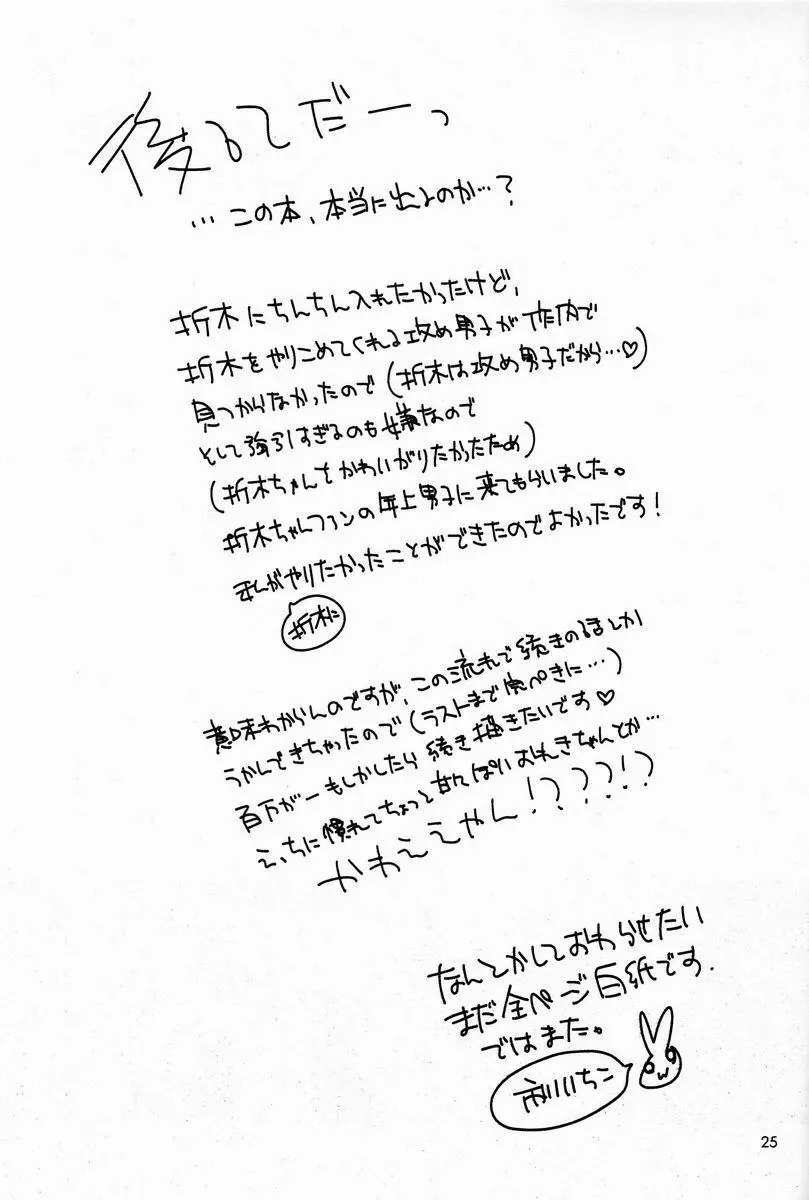 後書てだーっ
…この本、本当に出るのか…？
折木にちんちん入れたかったけど、
折木をやりこめてくれる攻め男子が作内で
見つからなかったので(折木は攻め男子だから…♡)
として強引すぎるのも嫌なので
(折木ちゃんをかわいがりたかったため)
折木ちゃんファンの年上男子に来てもらいました。
私がやりたかったことができたのでよかったです！
折木に
意味わからんのですが、この流れで続きのるまとか
うかんできちゃったので(ラストまで完ぺきに…)
百万が一もしかしたら続き描きたいです♡
えっちに慣れてちょっと甘えっぽいおれきちゃんとか…
かわええやん！？？？！？
なんとかしておわらせたい
まだ全ページ白紙です.
ではまた。
いちこ
25